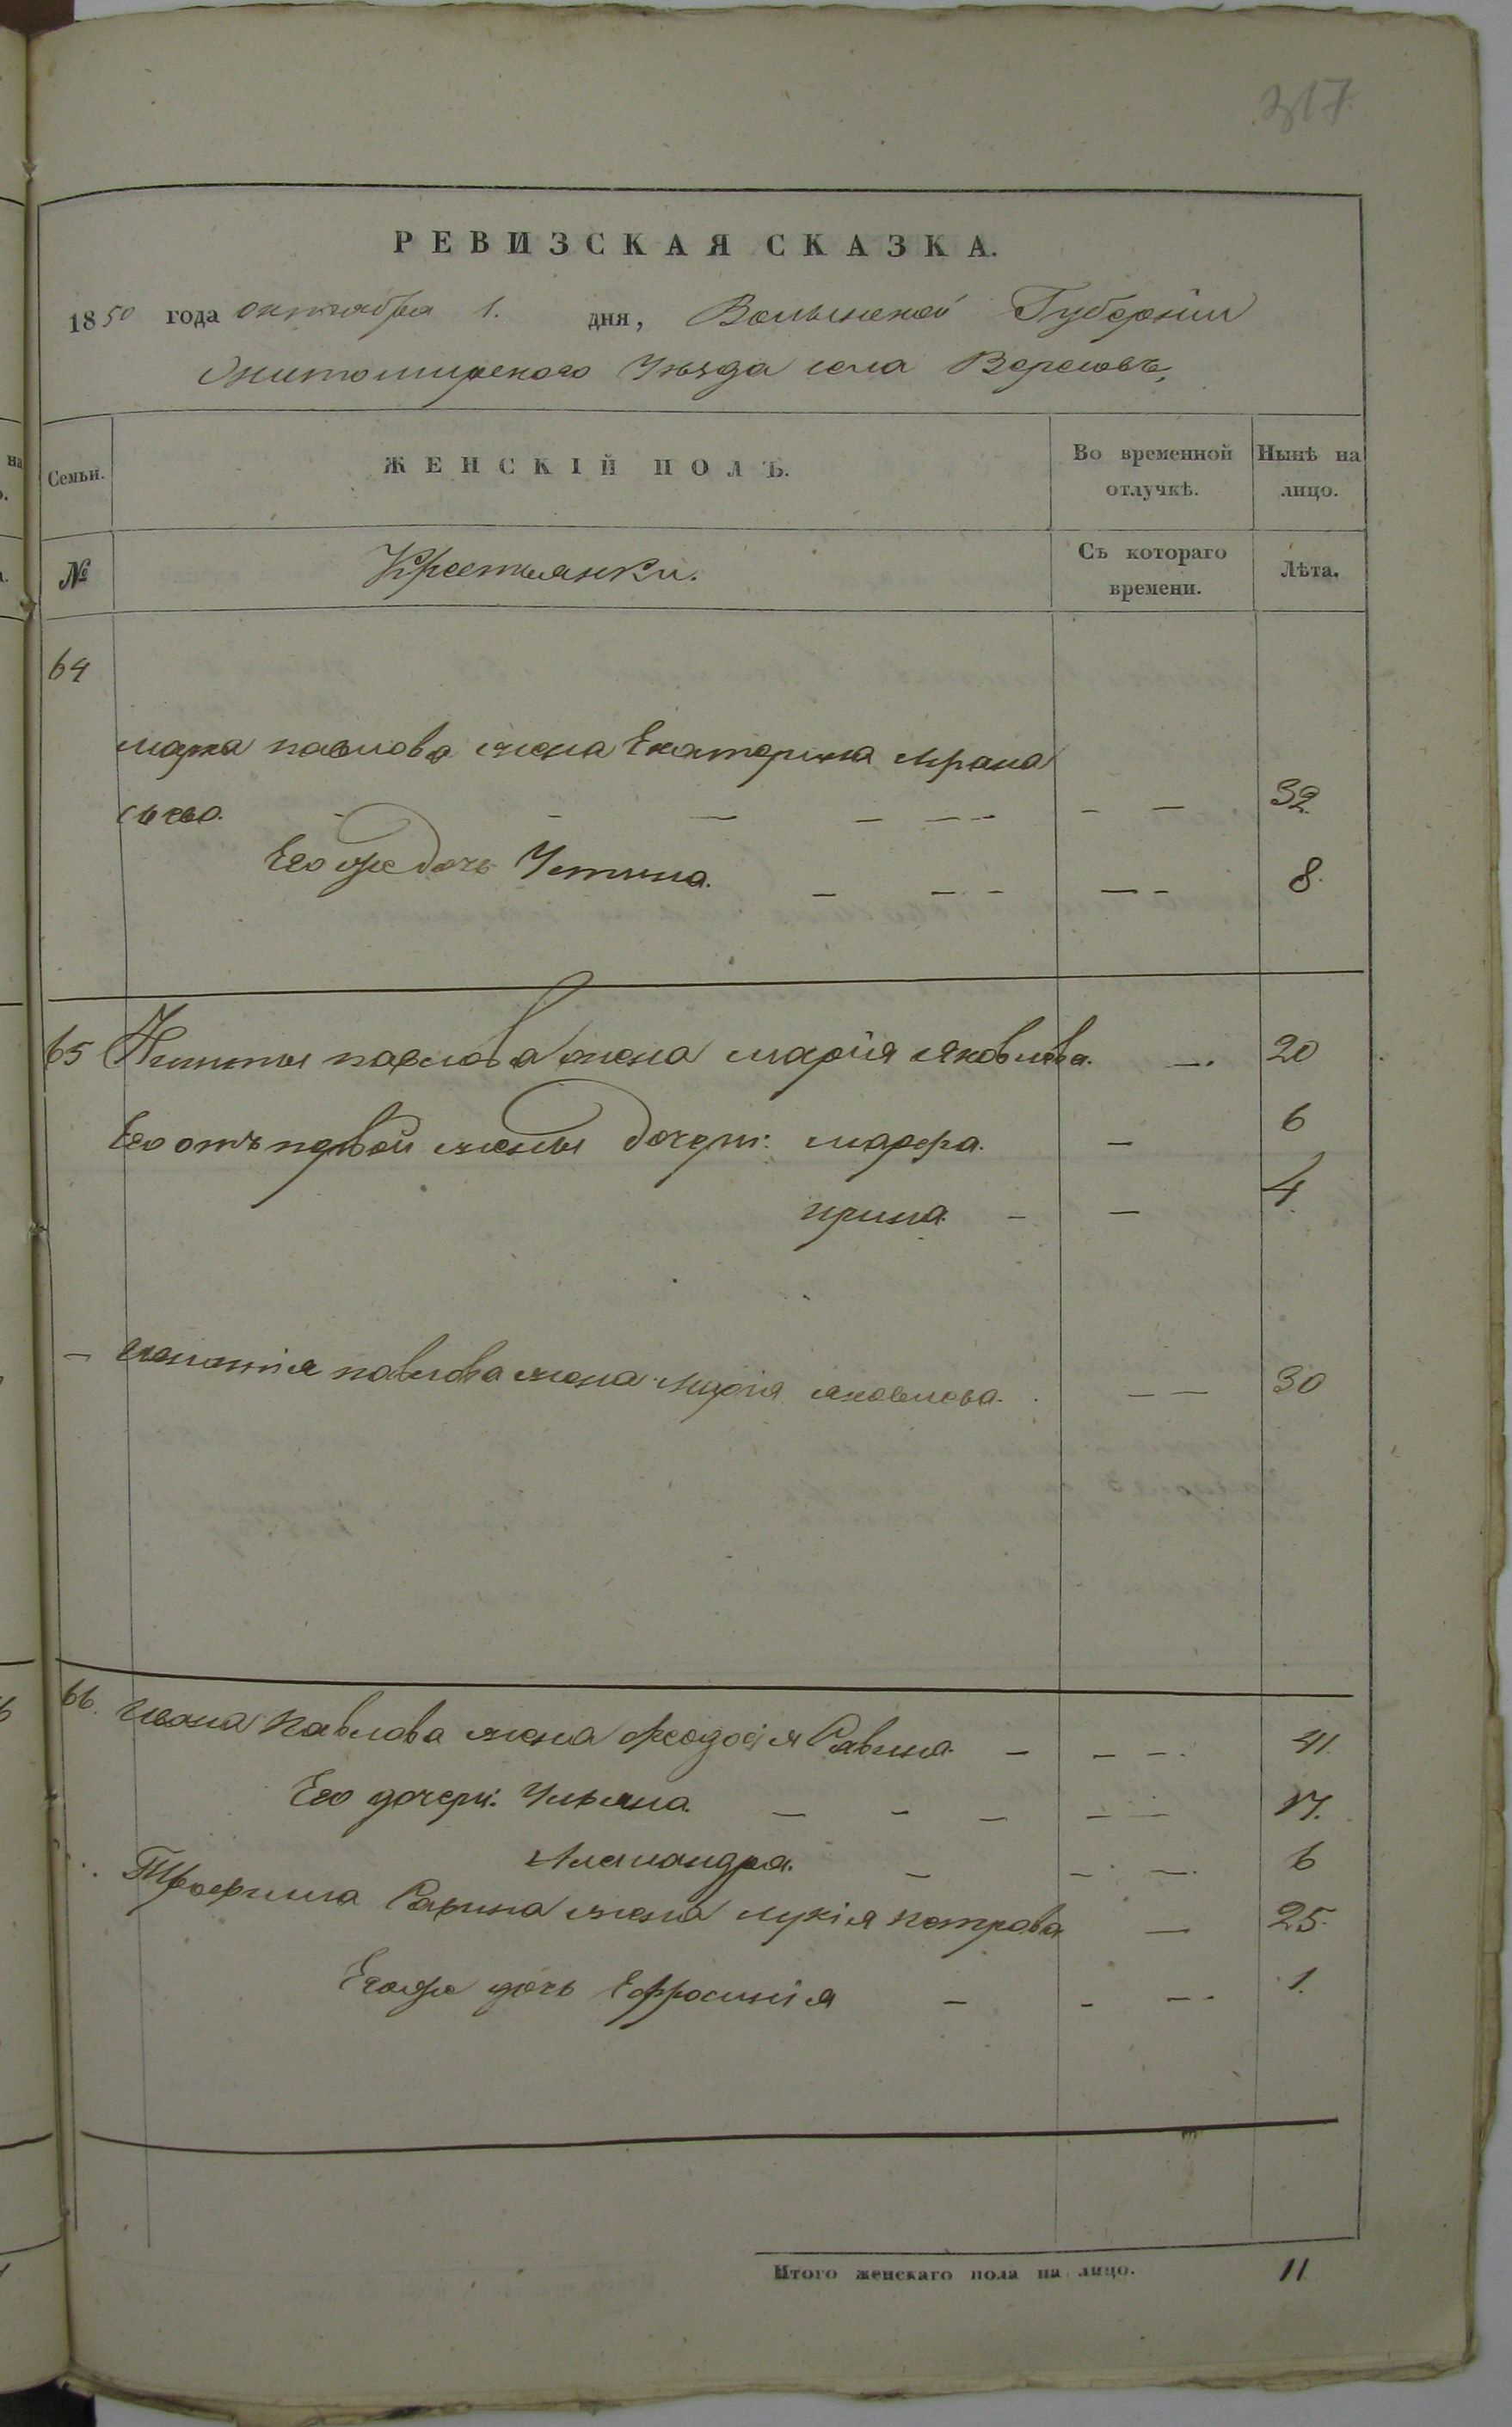 317
РЕВИЗСКАЯ СКАЗКА.
1850 года октября 1. дня, Волынской Губернии
Житомирского Уезда села Вересовъ,
Семьи. ЖЕНСКІЙ ПОЛЪ. Во временной отлучкѣ. Нынѣ на лицо.
№ Крестьянки. Съ котораго времени. Лѣта.
64
марка павлова жена Екатерина
32
Его же дочь Устина. 8.
65 Никиты павлова жена марія яковлева. 20
Его отъ первой жены дочери: марфа. 6
ирина. 4
павлова жена марія яковлева. 30
66. Ивана Павлова жена феодосія Савина. 41.
Его дочери: Ульяна. 17.
Александра. 6
Трофима Савина жена лукія петрова 25.
Его же дочь Ефросинія 1.
Итого женскаго пола на лицо. 11